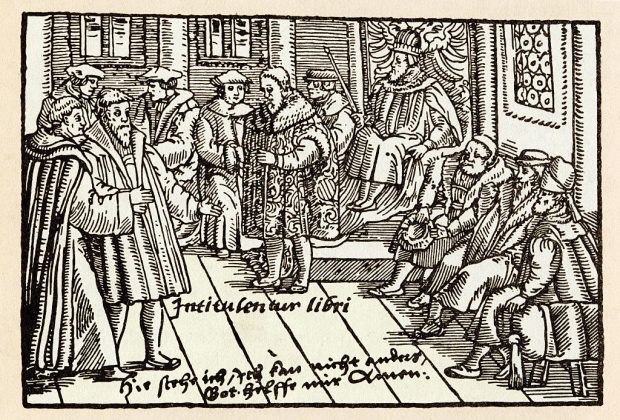 Intitulentur libri
Hie stehe ich, ich kan nicht anders,
Got helffe mir Amen.